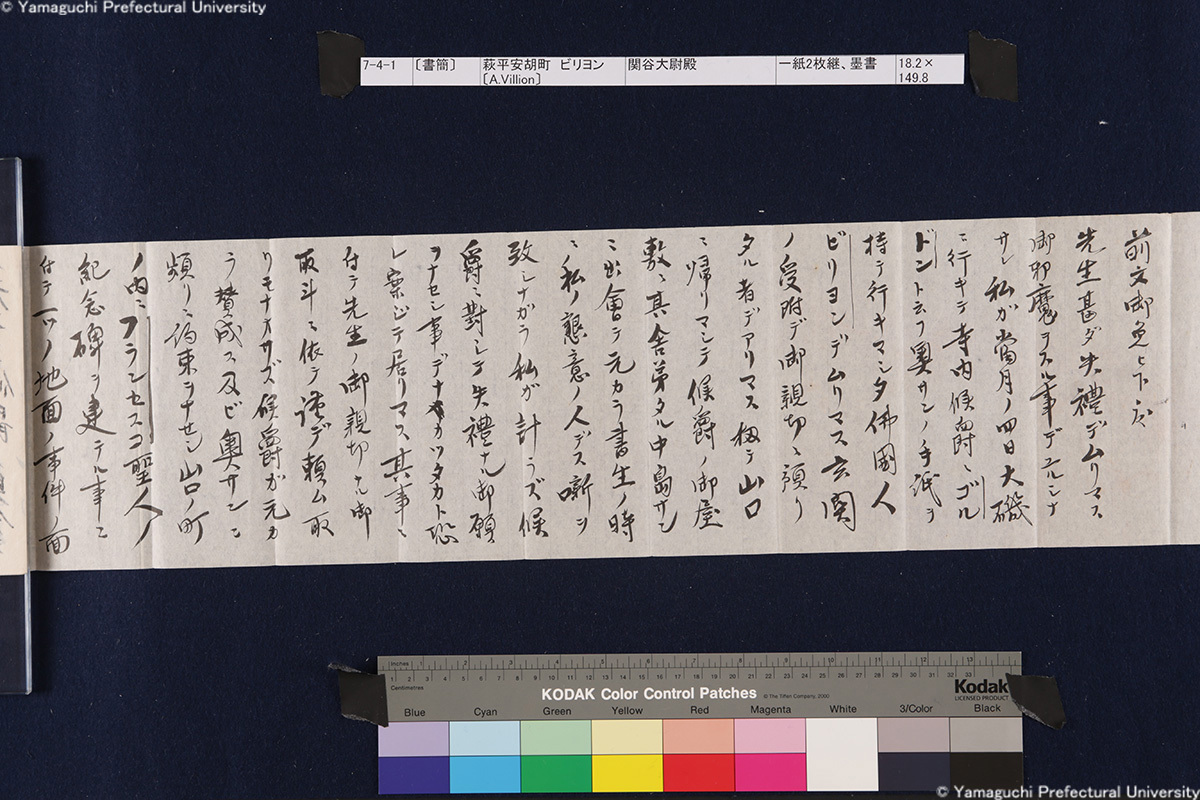 © Yamaguchi Prefectural University
7-4-1 〔書簡〕 萩平安胡町 ビリヨン 〔A.Villion〕 関谷大尉殿 一紙2枚継、墨書 18.2×149.8
前文御免ヒ下度
先生甚ダ失禮デムリマス
御邪魔ヲスル事デ
サレ私ガ當月ノ四日大磯
ニ行キテ寺内候爵ニゴル
ドントテフ奥サンノ手紙ヲ
持テ行キマシタ佛國人
ビリヨンデムリマス玄関
ノ受附デ御親切ニ預リ
タル者デアリマス扨テ山口
ニ帰リマシテ候爵ノ御屋
敷ニ其舎弟タル中島サン
ニ出會テ元カラ書生ノ時
ニ私ノ懇意ノ人デス噺シ
致シナガラ私ガ計ラズ候
爵ニ對シテ失禮ナル御願
ヲナセシ事デナカッタカト恐
レ案ジテ居リマス其事ニ
付テ先生ノ御親切ナル御
取斗ニ依テ謹デ頼ム取
リモナオサズ候爵ガ元カ
ラ賛成ス及ビ奥サンニ
頻リニ約束ヲナセシ山口ノ町
ノ内ニフランセスコ聖人ノ
紀念碑ヲ建テル事ニ
付テ一ツノ地面ノ事件ノ面
Inches 1 2 3 4 5 6 7 8 9 10 11 12 13
Centimetres 1 2 3 4 5 6 7 8 9 10 11 12 13 14 15 16 17 18 19 20 21 22 23 24 25 26 27 28 29 30 31 32 33
KODAK Color Control Patches © The Tiffen Company, 2000
Kodak
LICENSED PRODUCT
Blue Cyan Green Yellow Red Magenta White 3/Color Black
© Yamaguchi Prefectural University